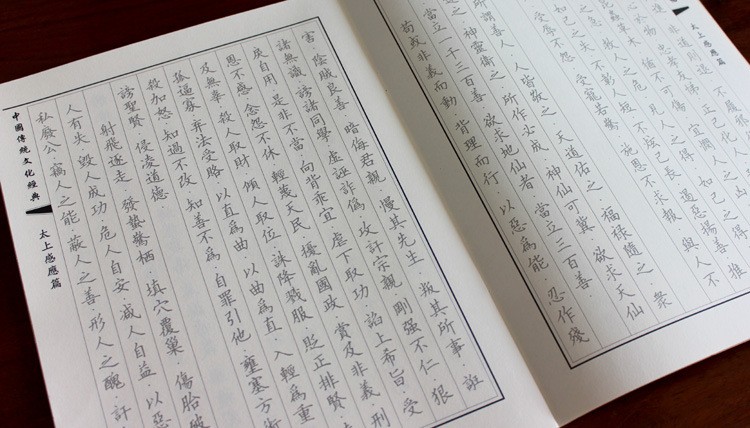 太上感應篇
非道則退·不履
於物·忠孝友悌·正己化人
蟲草木·猶不可傷·宜憫人
之急·救人之危·見人之得
如己之失·不彰人短·不炫己長·遏惡揚善·推
受辱不怨·受寵若驚·施恩不求報·與人不
所謂善人·人皆敬之·天道佑之·福祿隨之·衆
之·神靈衛之·所作必成·神仙可冀·欲求天仙
當立一千三百善·欲求地仙者·當立三百善·
苟或非義而動·背理而行·以惡為能·忍作殘
害·陰賊良善·暗侮君親·慢其先生·叛其所事·誑
諸無識·謗諸同學·虛誣詐偽·攻訐宗親·剛強不仁·狠
戾自用·是非不當·向背乖宜·虐下取功·諂上希旨·受
恩不感·念怨不休·輕蔑天民·擾亂國政·賞及非義·刑
及無辜·殺人取財·傾人取位·誅降戮服·貶正排賢·
孤逼寡·棄法受賂·以直為曲·以曲為直·入輕為重
殺加怒·知過不改·知善不為·自罪引他·壅塞方術
謗聖賢·侵凌道德·
射飛逐走·發蟄驚棲·填穴覆巢·傷胎破
人有失·毀人成功·危人自安·減人自益·以惡
私廢公·竊人之能·蔽人之善·形人之醜·訐
中國傳統文化經典
太上感應篇